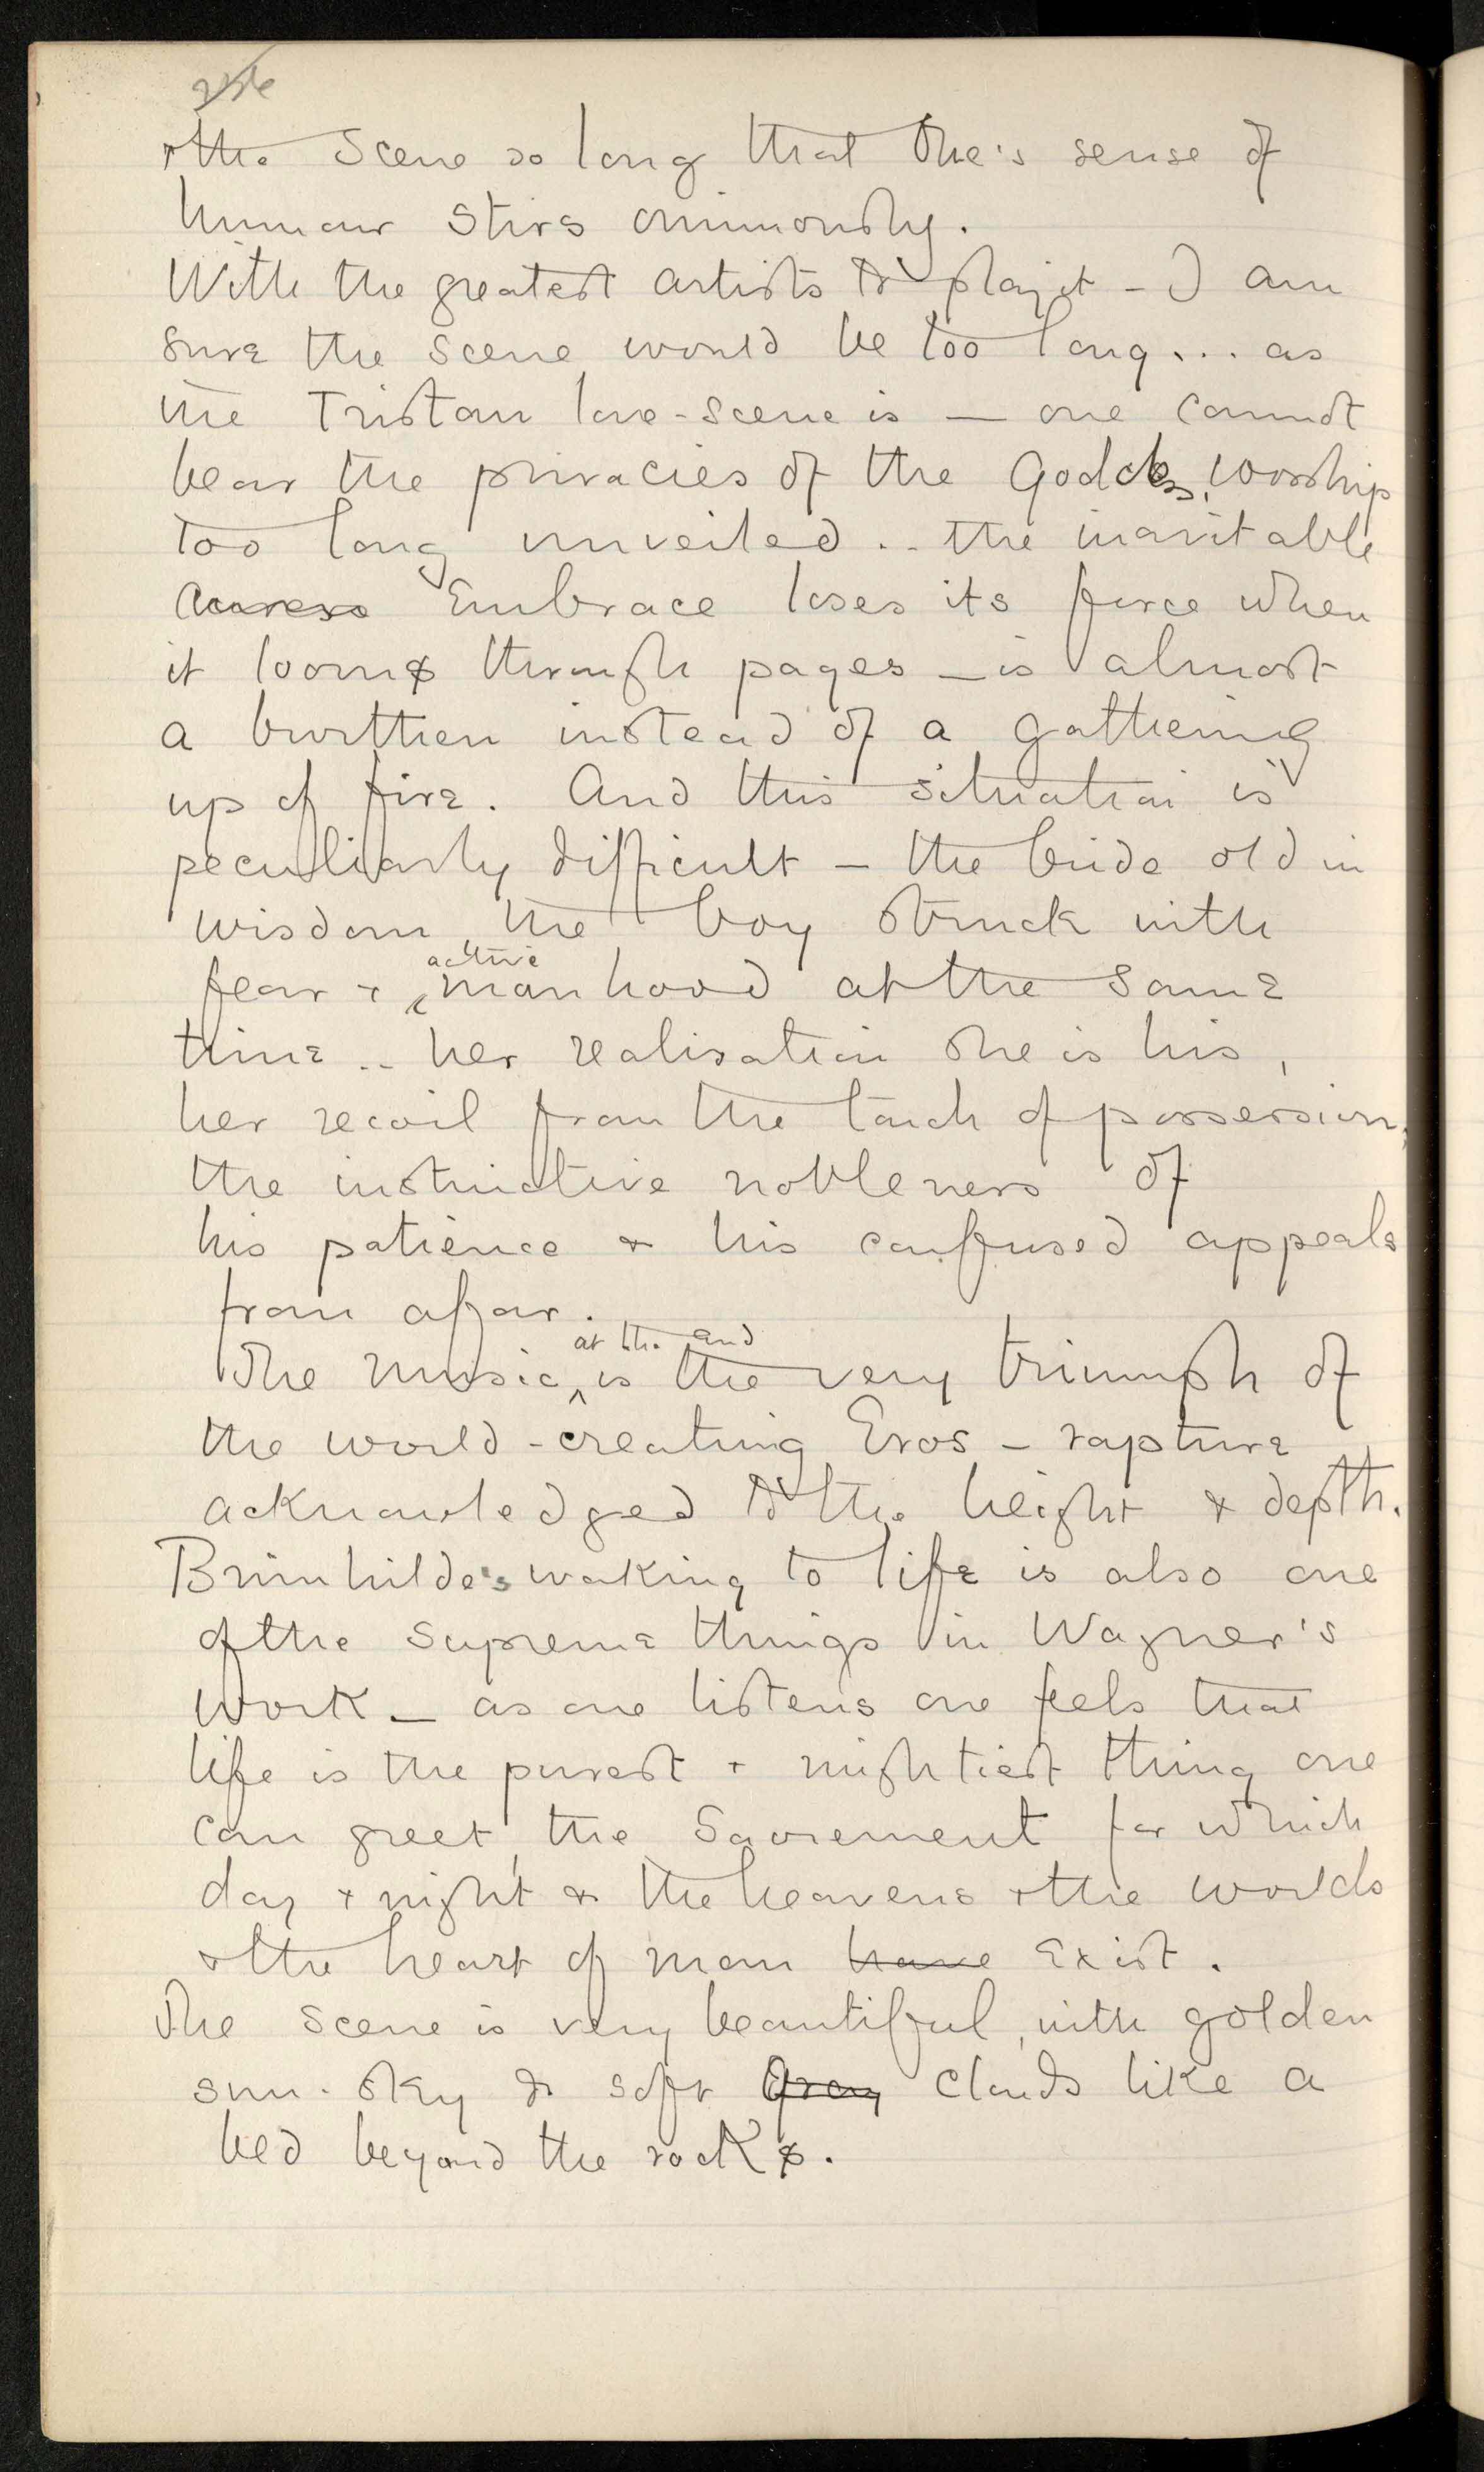 & the Scene so long that One's sense of
humour stirs ominously.
With the greatest artists to play it - I am
sure the scene would be too long... as
the Tristan love-scene is — one cannot
bear the privacies of the Goddess' worship
too long unveiled .. the inevitable
Caress Embrace loses its force when
it looms through pages — is almost
a burthen instead of a gathering
up of fire. And this situation is
peculiarly difficult — the bride old in
wisdom, the boy struck with
fear & active manhood at the same
time .. her realisation she is his,
her recoil from the touch of possession,
the instinctive nobleness of
his patience & his confused appeals
from afar.
The music, at the end is the very triumph of
the world-creating Eros — rapture
acknowledged to the height & depth.
Brünhilde's waking to life is also one
of the supreme things in Wagner's
work — as one listens one feels that
life is the purest & mightiest thing one
can greet, the Sacrement for which
day & night & the heavens & the worlds
& the heart of man have exist.
The scene is very beautiful, with golden
sun-sky & soft gray clouds like a
bed beyond the rocks.